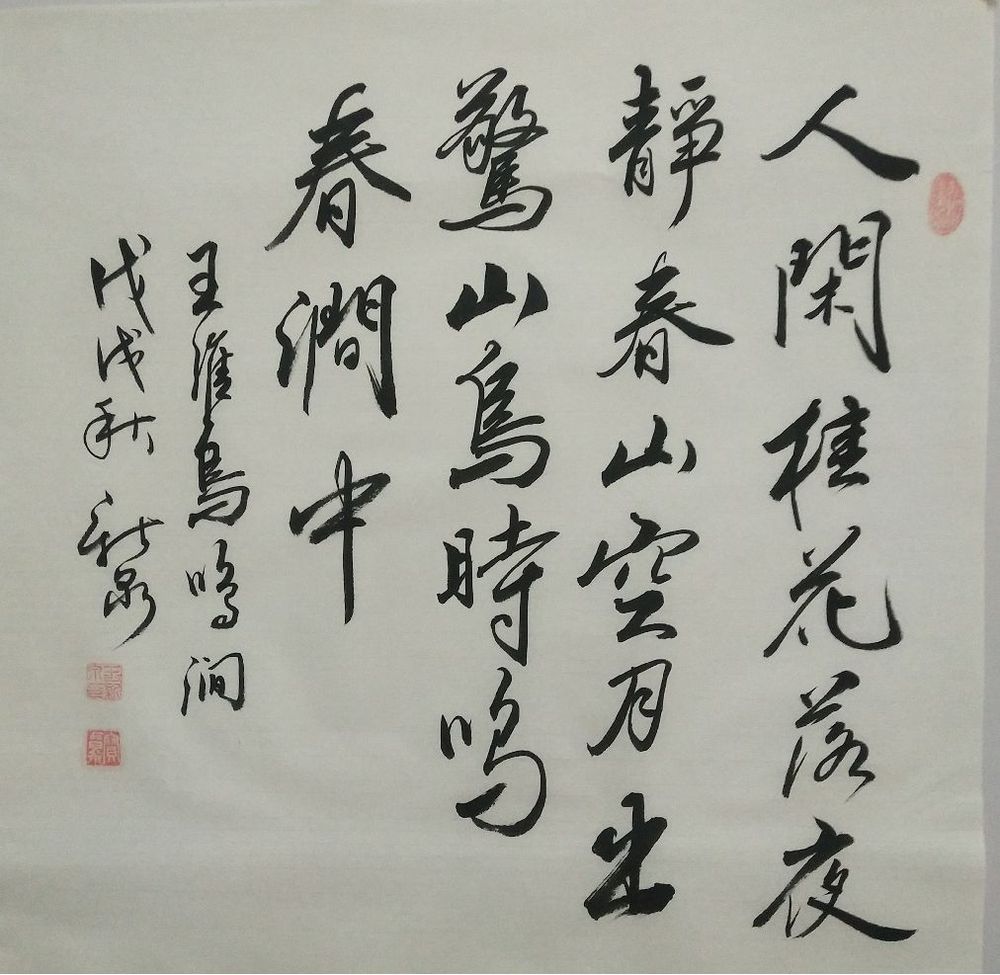 人閑桂花落夜
靜春山空月出
驚山鳥時鳴
春澗中
王維鳥鳴澗
戊戌秋